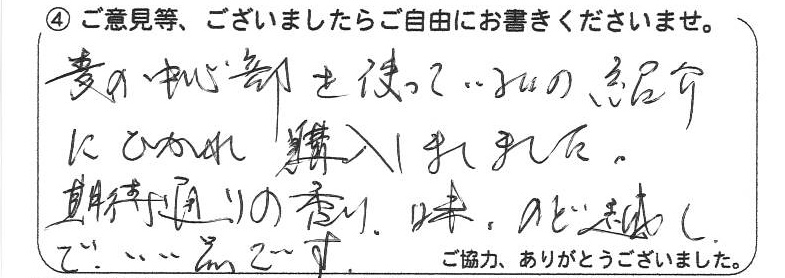 ④ ご意見等、ございましたらご自由にお書きくださいませ。
麦の中心部を使っているの紹介
にひかれ購入しました。
期待通りの香り、味、のど越し
で、いい品です。
ご協力、ありがとうございました。